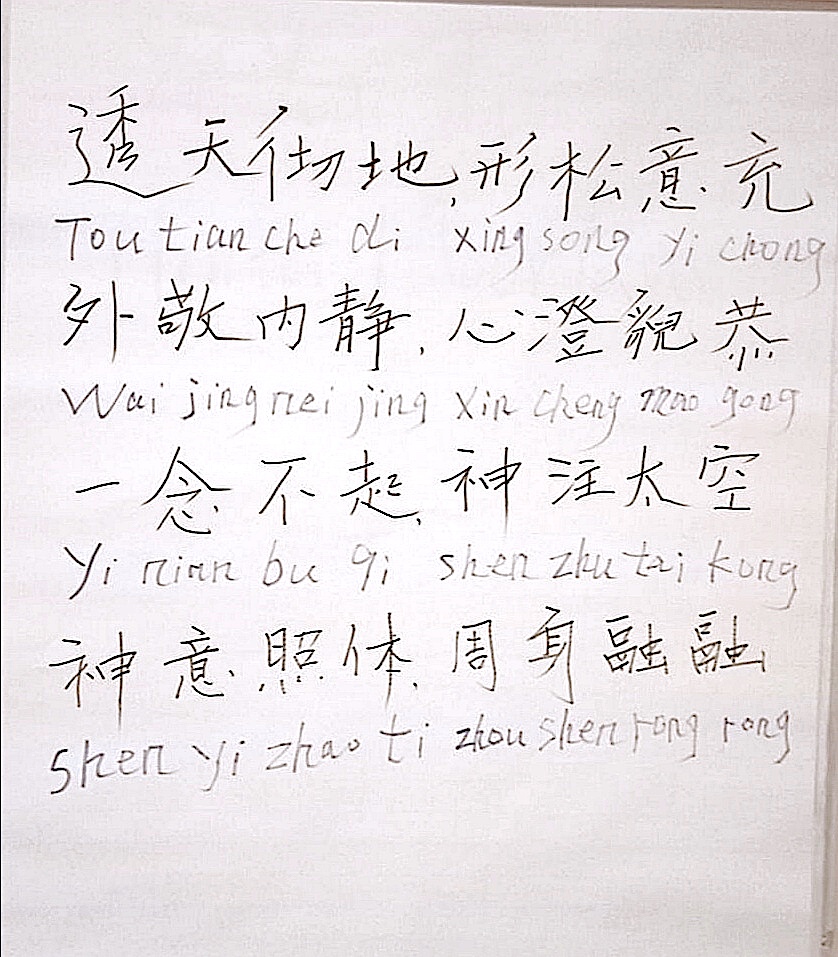 透天彻地,形松意充
Tou tian che di xing song yi chong
外敬内静,心澄貌恭
Wai jing nei jing xin cheng mao gong
一念不起,神注太空
Yi nian bu qi shen zhu tai kong
神意照体,周身融融
shen yi zhao ti zhou shen rong rong